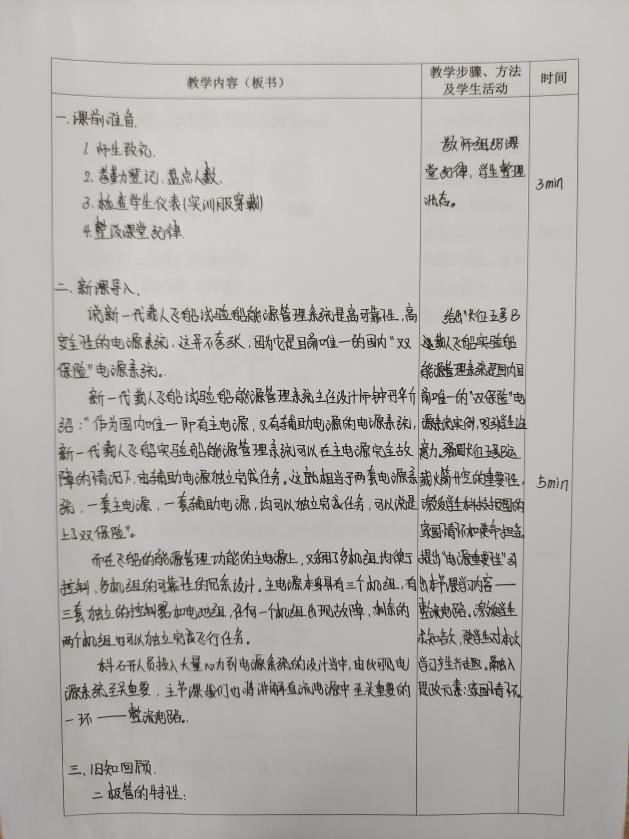 教学内容（板书）
教学步骤、方法
及学生活动
时间
一、课前准备
1.师生致礼.
2.考勤登记、盘点人数.
3.检查学生仪表(实训服穿戴)
4.整顿课堂纪律.
教师组织课
堂纪律，学生整理
状态。
3min
二、新课导入.
说新一代载人飞船试验船能源管理系统是高可靠性,高
安全性的电源系统，这并不夸张，因为它是目前唯一的国内“双
保险”电源系统.
新一代载人飞船试验船能源管理系统主任设计师钟丹华介
绍：“作为国内唯一即有主电源，又有辅助电源的电源系统，
新一代载人飞船实验船能源管理系统可以在主电源完全故
障的情况下,由辅助电源独立完成任务。这就相当于两套电源系
统，一套主电源，一套辅助电源，均可以独立完成任务，可以说是
上了双保险”。
而在飞船的能源管理功能的主电源上，又采用了多机组均衡了
控制、多机组的可靠性的冗余设计。主电源本身具有三个机组，有
三套独立的控制器和电池组，任何一个机组出现故障，剩余的
两个机组也可以独立完成飞行任务。
科研人员投入大量心力到电源系统的设计当中,由此可见电
源系统至关重要，本节课我们也将讲解直流电源中至关重要的
一环——整流电路.
给出“长征五号B
运载人飞船实验船
能源管理系统是国内目
前唯一的“双保险”电
源系统实例,吸引学生注
意力。强调长征五号B运
载火箭升空的重要性，
激发学生科技对我国的
家国情怀和使命担当。
提出“电源重要性”引
出本节课学习内容——
整流电路。激发学生
求知欲，使学生对本次
学习产生兴趣。融入
思政元素：家国情怀。
5min
三、旧知回顾.
二极管的特性：